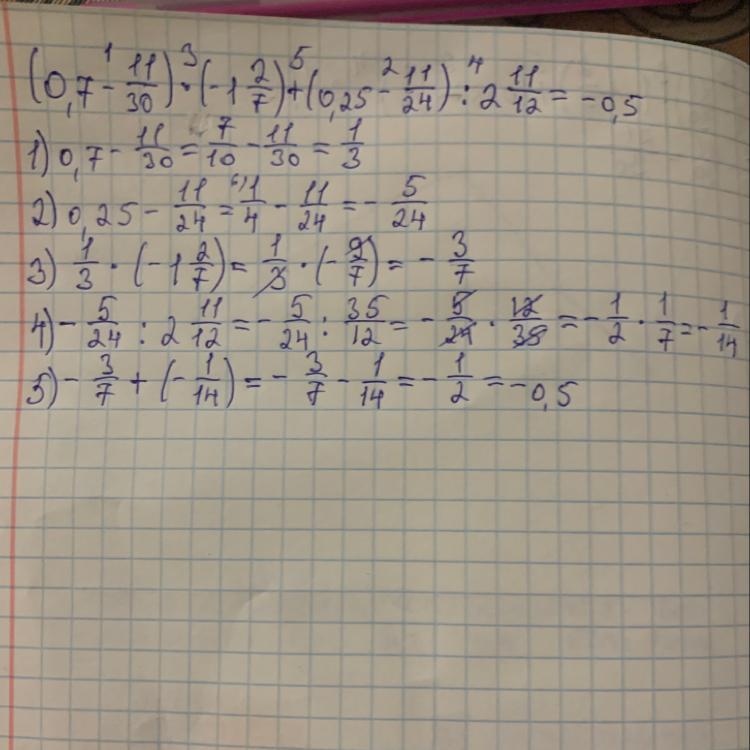 (0,7 - 11/30) · (-1 2/7) + (0,25 - 11/24) : 2 11/12 = -0,5
1) 0,7 - 11/30 = 7/10 - 11/30 = 1/3
2) 0,25 - 11/24 = 1/4 - 11/24 = - 5/24
3) 1/3 · (-1 2/7) = 1/3 · (- 9/7) = - 3/7
4) - 5/24 : 2 11/12 = - 5/24 : 35/12 = - 5/24 · 12/35 = - 1/2 · 1/7 = - 1/14
5) - 3/7 + (- 1/14) = - 3/7 - 1/14 = - 1/2 = -0,5